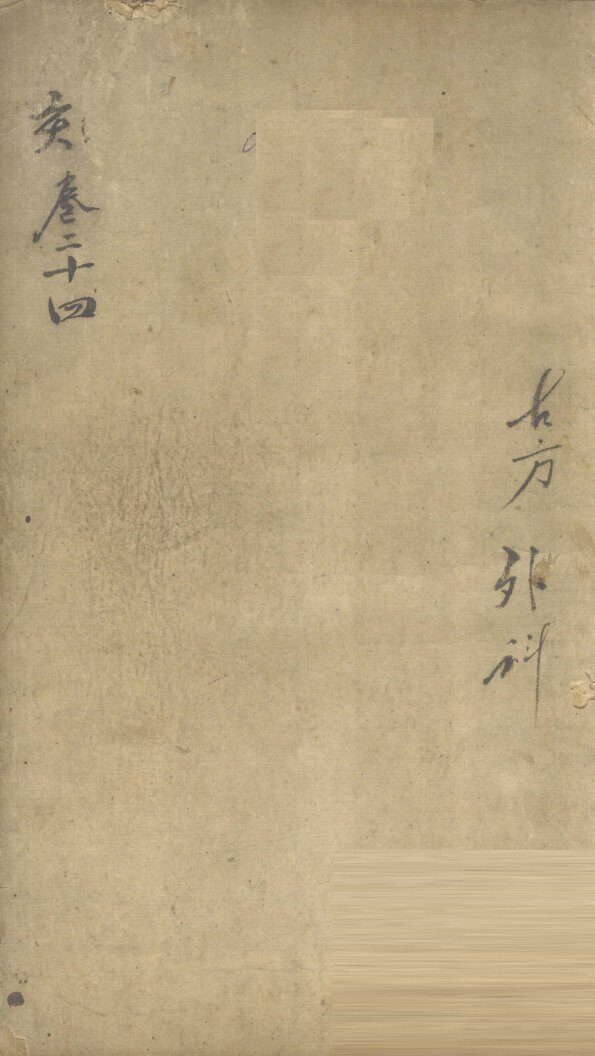 古方 外科
亥 卷二十四